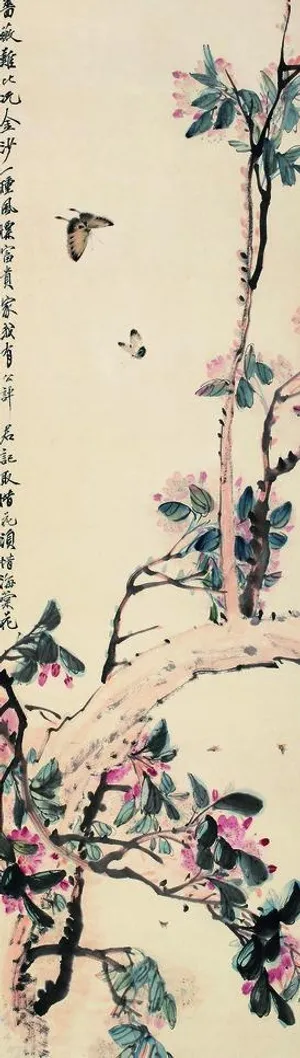 薔薇難比況金沙一種風標富貴家我有公評君記取惜花須惜海棠花